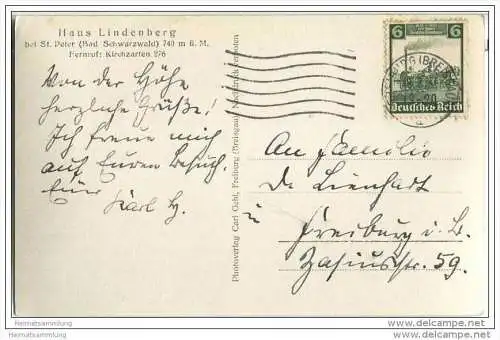 Haus Lindenberg
bei St. Peter (Bad. Schwarzwald) 740 m ü. M.
Fernruf: Kirchzarten 276
Von der Höhe
herzliche Grüße!
Ich freue mich
auf Euren Besuch.
Euer
Karl H.
Photoverlag Carl Gehl, Freiburg (Breisgau). Nachdruck verboten
6
Deutsches Reich
FREIBURG (BREISGAU)
An Familie
Dr. Lienhart
in
Freiburg i. B.
Zasiusstr. 59.
Heimatsammlung
http://Heimatsammlung.delcampe.net
Heimatsammlung
http://Heimatsammlung.delcampe.net